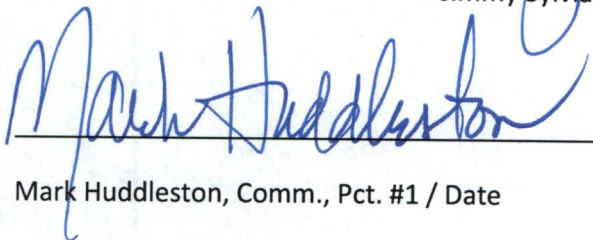 Mark Huddleston
Mark Huddleston, Comm., Pct. #1 / Date